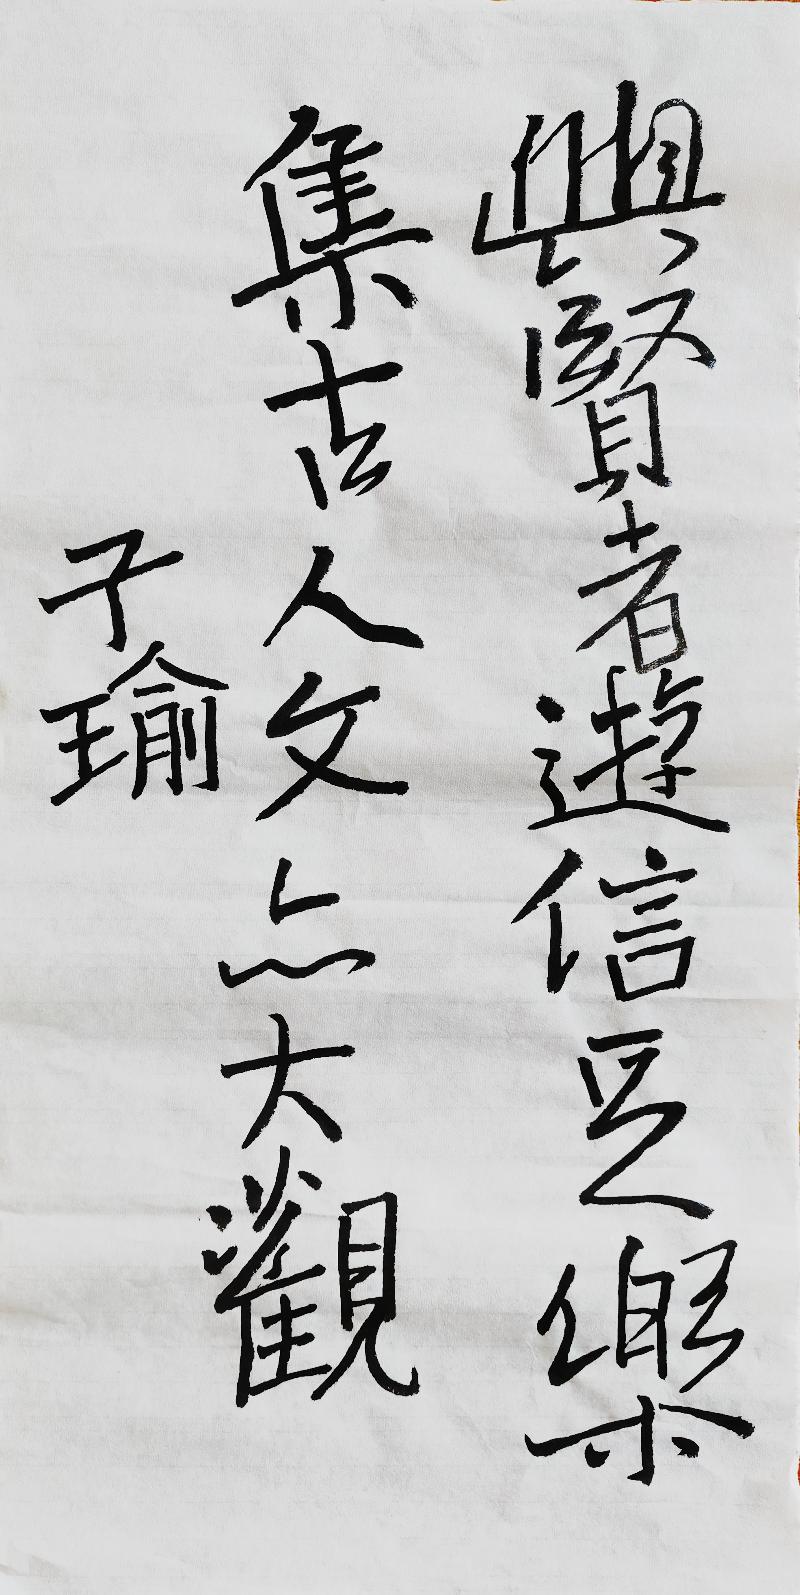 與賢者遊信足樂
集古人文亦大觀
子瑜